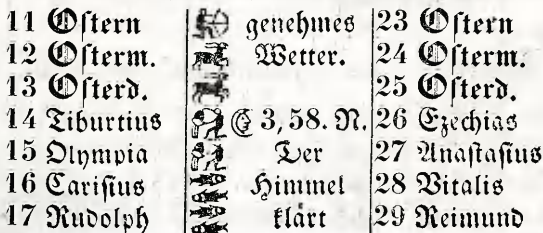 11 Oſtern genehmes 23 Oſtern
12 Oſterm. Wetter. 24 Oſterm.
13 Oſterd. 25 Oſterd.
14 Tiburtius 3, 58. N. 26 Ezechias
15 Olympia Der 27 Anaſtaſius
16 Cariſius Himmel 28 Vitalis
17 Rudolph klärt 29 Reimund